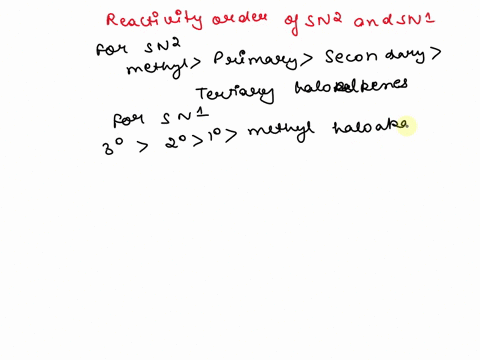 Reactivity order of SN2 and SN1
for SN2
methyl > Primary > Secondary >
Tertiary
for SN1
3° > 2° > 1° > methyl haloaka